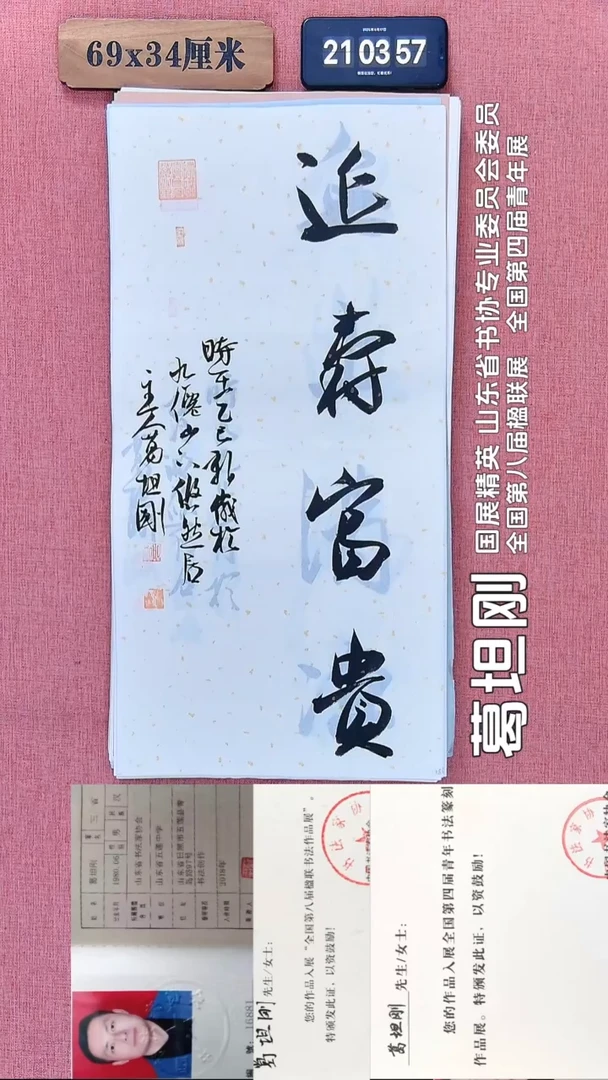 69x34厘米
21 03 57
延寿富貴
時在乙巳新歲於
九僊山下悠然居
主人葛坦剛
葛坦刚
国展精英 山东省书协专业委员会委员
全国第八届楹联展 全国第四届青年展
葛坦刚
1980.06
汉
山东省书法家协会
山东省五莲中学
书法创作
2019年
葛坦刚 先生/女士：
您的作品入展“全国第八届楹联书法作品展”。
特颁发此证，以资鼓励！
葛坦刚 先生/女士：
您的作品入展全国第四届青年书法篆刻
作品展。特颁发此证，以资鼓励！